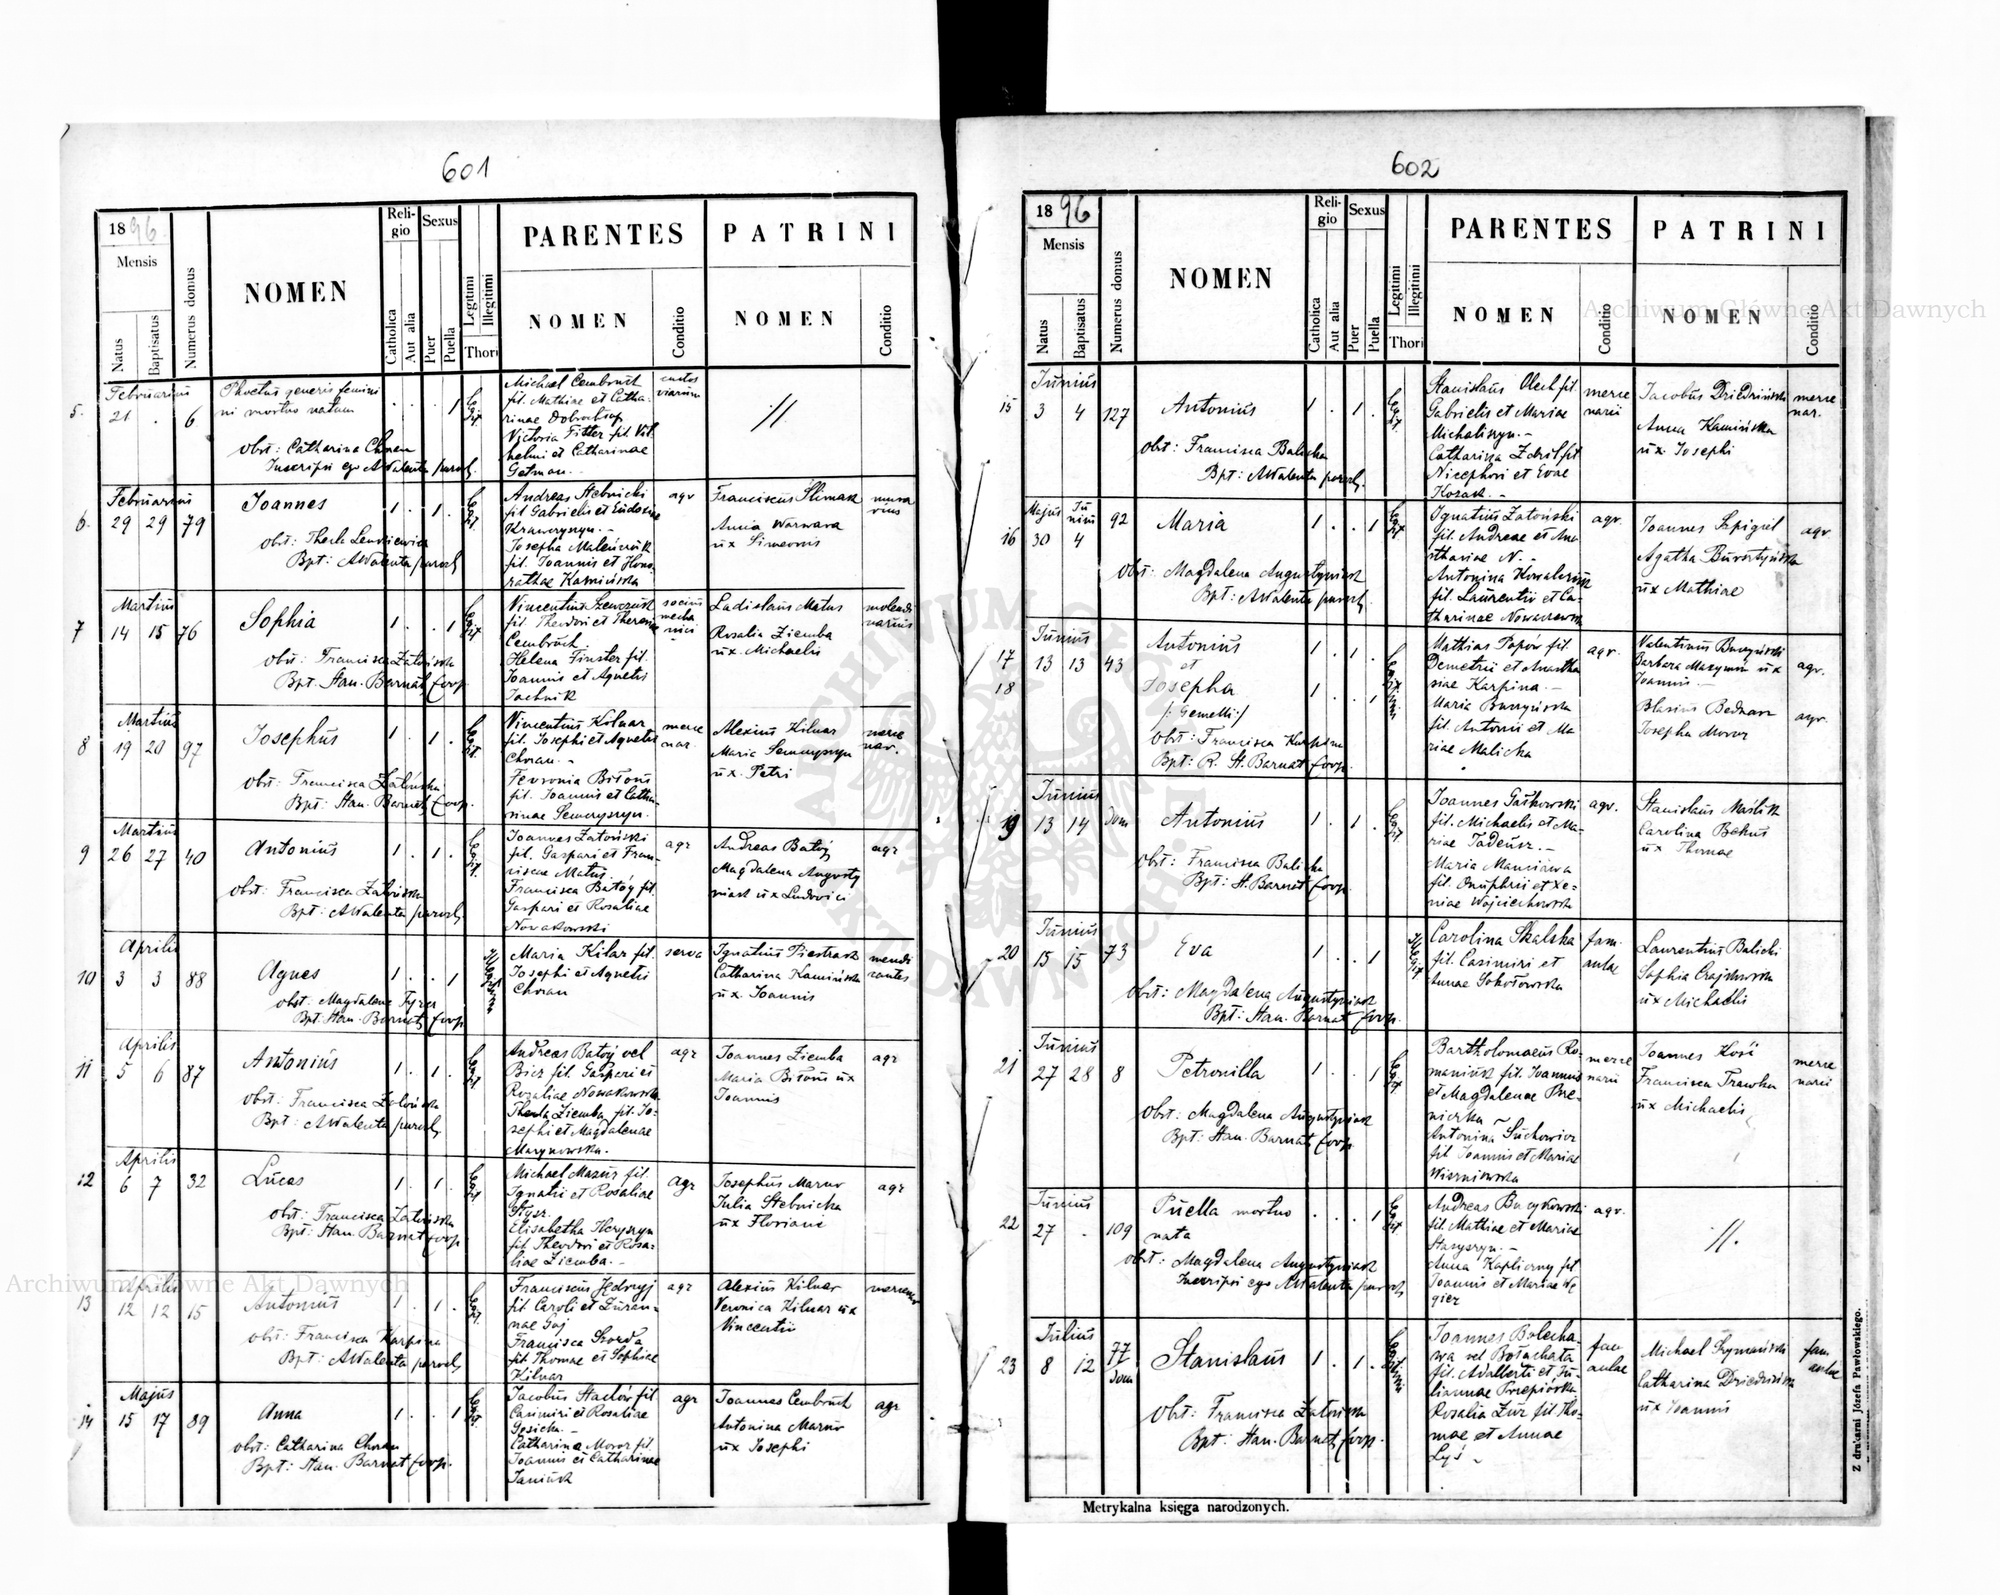 601
1896
Mensis
Natus
Baptisatus
Numerus domus
NOMEN
Religio
Catholica
Aut alia
Sexus
Puer
Puella
Legitimi
Illegitimi
Thori
PARENTES
NOMEN
Conditio
PATRINI
NOMEN
Conditio
5. Februarius
21 . 6
Phoetus generis femini
ni mortuo natum
obst: Catharina Choran
Inscripsi ego AWalenta paroch.
Michael Cembruch
fil. Mathiae et Catha-
rinae
Victoria Fitter fil. Vil
helmi et Catharinae
Getman.
custos
viarum
//
6. Februarius
29 29 79
Joannes
obst: Thecla Lenkiewicz
Bpt: AWalenta paroch
Andreas Stebnicki
fil Gabrielis et Eudoxiae
Krawczyszyn. -
Josepha Maleńczuk
fil. Joannis et Hono
rathae Kamińska
agr
Franciscus Slimak
Anna Warwara
ux Simeonis
7 Martius
14 15 76
Sophia
obst: Francisca Zatońska
Bpt. Stan. Barnaś Coop
Vincentius Szewczuk
fil. Theodori et Theresiae
Cembruch
Helena Finster fil.
Joannis et Agnetis
Jachnik
socius
mecha
nici
Ladislaus Matus
Rosalia Ziemba
ux. Michaelis
molendi
narius
8 Martius
19 20 97
Josephus
obst: Francisca Zatońska
Bpt: Stan. Barnaś Coop.
Vincentius Kilnar
fil. Josephi et Agnetis
Choran. -
Fevronia Biłous
fil. Joannis et Catha-
rinae Semczyszyn.
merce
nar.
Alexius Kilnar
Maria Semczyszyn
ux. Petri
merce
nar.
9 Martius
26 27 40
Antonius
obst: Francisca Zatońska
Bpt: AWalenta paroch
Joannes Zatoński
fil. Gaspari et Fran-
ciscae Matus.
Francisca Batóg fil.
Gaspari et Rosaliae
Nowakowski
agr
Andreas Batóg
Magdalena Augusty
niak ux Ludovici
agr
10 Aprilis
3 3 88
Agnes
obst: Magdalena Tyzer
Bpt: Stan. Barnaś Coop
Maria Kilar fil.
Josephi et Agnetis
Choran
serva
Ignatius Piestrak
Catharina Kamińska
ux. Joannis
mendi
cantes
11 Aprilis
5 6 87
Antonius
obst: Francisca Zatońska
Bpt: AWalenta paroch
Andreas Batóg vel
Bicz fil. Gaspari et
Rosaliae Nowakowska
Thecla Ziemba fil. Jo-
sephi et Magdalenae
Marynowska.
agr
Joannes Ziemba
Maria Biłous ux
Joannis
agr
12 Aprilis
6 7 32
Lucas
obst: Francisca Zatońska
Bpt: Stan. Barnaś Coop
Michael Mazur fil.
Ignatii et Rosaliae
Stysz.
Elisabetha Heryszyn
fil Theodori et Rosa-
liae Ziemba. -
agr
Josephus Marur
Julia Stebnicka
ux Floriani
agr
13 Aprilis
12 12 15
Antonius
obst: Francisca Karpina
Bpt: AWalenta paroch
Franciscus Jędryj
fil Caroli et Zuzan-
nae Gaj
Francisca Szozda
fil Thomae et Sophiae
Kilnar
agr
Alexius Kilnar
Veronica Kilnar ux
Vincentii
14 Majus
15 17 89
Anna
obst: Catharina Choran
Bpt: Stan. Barnaś Coop.
Jacobus Stachów fil
Casimiri et Rosaliae
Gesicka. -
Catharina Moroz fil.
Joannis et Catharinae
Janiuk
agr
Joannes Cembruch
Antonina Marur
ux Josephi
agr
602
1896
Mensis
Natus
Baptisatus
Numerus domus
NOMEN
Religio
Catholica
Aut alia
Sexus
Puer
Puella
Legitimi
Illegitimi
Thori
PARENTES
NOMEN
Conditio
PATRINI
NOMEN
Conditio
15 Junius
3 4 127
Antonius
obst: Francisca Balicka
Bpt: AWalenta paroch.
Stanislaus Olech fil.
Gabrielis et Mariae
Michaliszyn. -
Catharina Zdril fil
Nicephori et Evae
Kozak. -
merce
narii
Jacobus Driedziński
Anna Kamińska
ux. Josephi
merce
nar.
16 Majus Junius
30 4 92
Maria
Obst: Magdalena Augustyniak
Bpt: AWalenta paroch.
Ignatius Zatoński
fil. Andreae et Ana
sthasiae N. -
Antonina Kowaleriu
fil. Laurentii et Ca-
tharinae Nowaczewska
agr.
Joannes Szpigiel
Agatha Bursztyńska
ux Mathiae
agr
17 Junius
18 13 13 43
Antonius
et
Josepha
/: Gemelli :/
Obst: Francisca Karpina
Bpt: R. St. Barnaś Coop.
Mathias Popów fil.
Demetrii et Anastha
siae Karpina. -
Maria Buczyńska
fil. Antonii et Ma
riae Malicka
agr.
Valentinus Buczyński
Barbara Mazymiu ux
Joannis
Blasius Bednarz
Josepha Moroz
agr.
agr.
19 Junius
13 14 dom
Antonius
obst: Francisca Balicka
Bpt: St. Barnaś Coop
Joannes Gaskowski
fil. Michaelis et Ma-
riae Tadeusz. -
Maria Manciawa
fil. Onuphrii et Xe-
niae Wojciechowska
agr.
Stanislaus Maślik
Carolina Bekus
ux Thomae
20 Junius
15 15 73
Eva
obst: Magdalena Augustyniak
Bpt: Stan. Barnaś Coop.
Carolina Skalska
fil. Casimiri et
Annae Sokołowska
fam.
aulae
Laurentius Balicki
Sophia Czajkowska
ux Michaelis
21 Junius
27 28 8
Petronilla
Obst: Magdalena Augustyniak
Bpt: Stan. Barnaś Coop
Bartholomaeus Ro-
maniuk fil. Joannis
et Magdalenae Pie-
niczka
Antonina Suchowicz
fil Joannis et Mariae
Wierniewska
merce
narii
Joannes Kość
Francisca Trawka
ux Michaelis
merce
narii
22 Junius
27 . 109
Puella mortuo
nata
obst: Magdalena Augustyniak
Inscripsi ego AWalenta paroch
Andreas Buczkowski
fil. Mathiae et Mariae
Stasyszyn. -
Anna Kaplierny fil
Joannis et Mariae Wę
gier
agr.
//.
23 Julius
8 12 77
dom
Stanislaus
Obst: Francisca Zatońska
Bpt: Stan. Barnaś Coop.
Joannes Bolecha-
wa vel Bołachata
fil. Adalberti et Ju-
liannae Przepiórka
Rosalia Zür fil Tho-
mae et Annae
Lyś
fam
aulae
Michael Szymański
Catharina Dziedzińska
ux Joannis
fam.
aulae
Metrykalna księga narodzonych.
Z drukarni Józefa Pawłowskiego.
Archiwum Główne Akt Dawnych
Archiwum Główne Akt Dawnych
ARCHIWUM GŁÓWNE AKT DAWNYCH